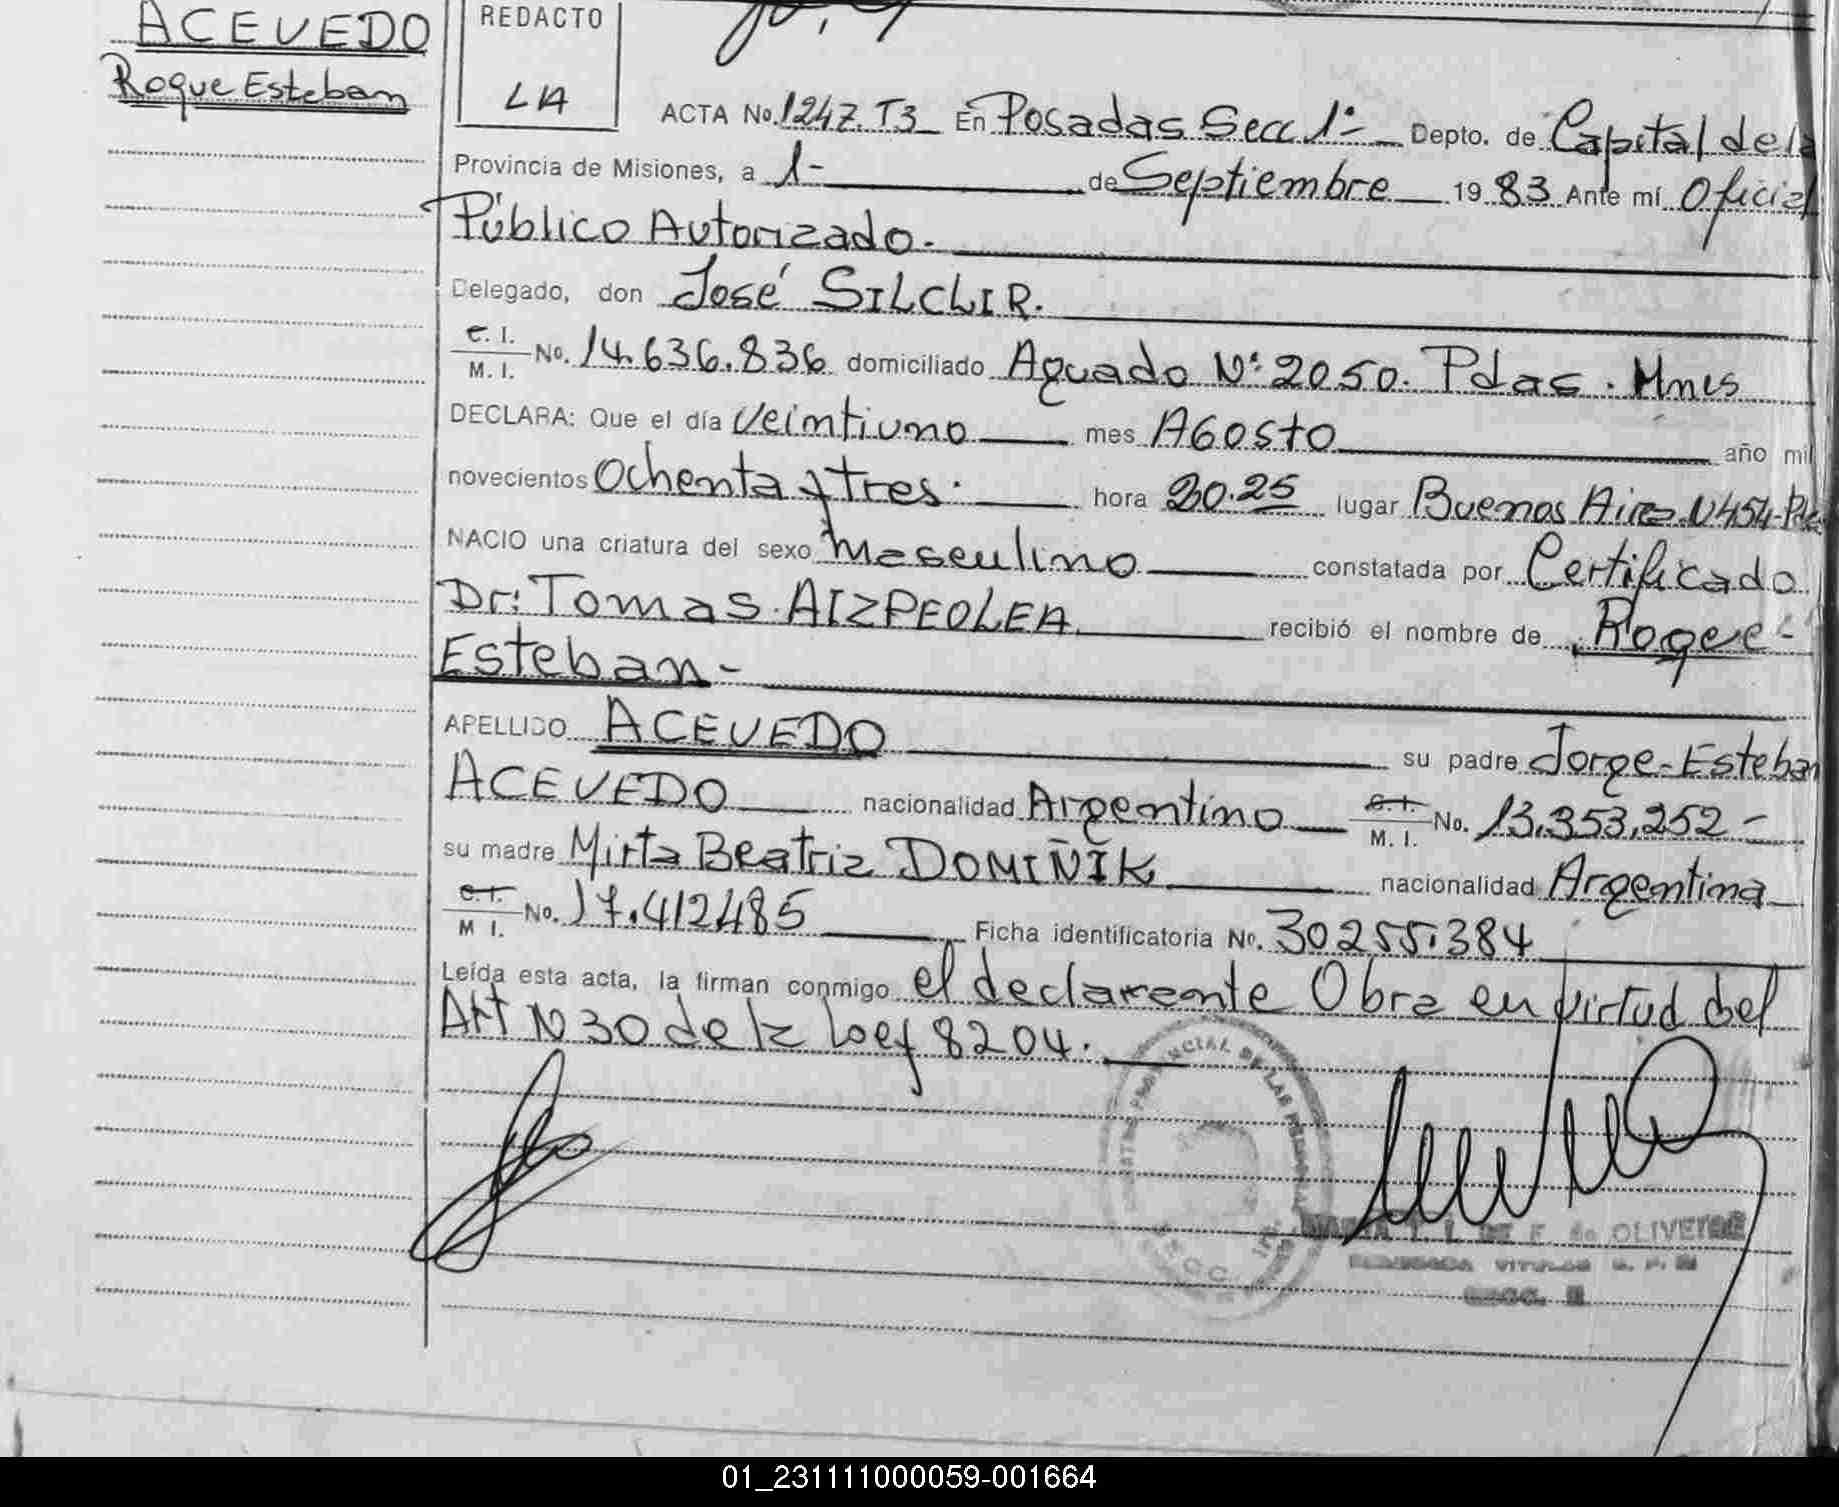 ACEVEDO
Roque Esteban
REDACTO
LA
ACTA No. 1247. T3 En Posadas Secc 1ª Depto. de Capital de la
Provincia de Misiones, a 1- de Septiembre 1983 Ante mí Oficial
Público Autorizado.
Delegado, don José SILCLIR.
C. I. / M. I. No. 14.636.836 domiciliado Aguado Nº 2050. Pdas. Mnes
DECLARA: Que el día veintiuno mes AGOSTO año mil
novecientos Ochenta y tres. hora 20.25 lugar Buenos Aires N 454-Pdas
NACIO una criatura del sexo Masculino constatada por Certificado
Dr: Tomas. AIZPEOLEA recibió el nombre de Roque-
Esteban-
APELLIDO ACEVEDO su padre Jorge-Esteban
ACEVEDO nacionalidad Argentino C. I. / M. I. No. 13.353.252-
su madre Mirta Beatriz DOMIÑIK nacionalidad Argentina
C. I. / M I. No. 17.412485 Ficha identificatoria No. 30255.384
Leída esta acta, la firman conmigo el declarante Obra en virtud del
Art N 30 de la Ley 8204.
PROVINCIAL DE LAS PERSONAS
DE F. de OLIVEIRA
01_231111000059-001664